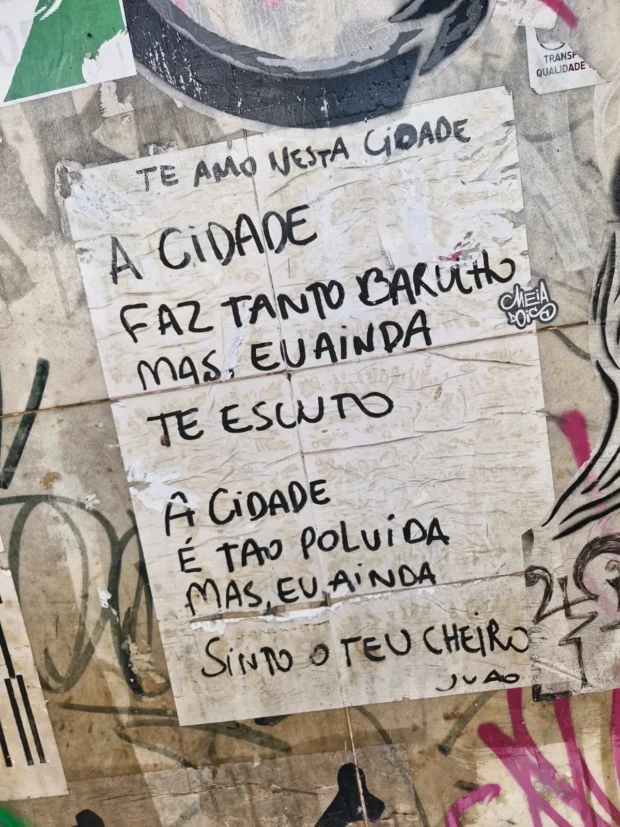 TRANSP
QUALIDADE
TE AMO NESTA CiDADE
A CiDADE
FAZ TANTO BARULHO
MAS, EU AiNDA
TE ESCUTO
MEIA
A CiDADE
É TAO POLUiDA
MAS, EU AiNDA
SiNTO O TEU CHEiRO
JUAO